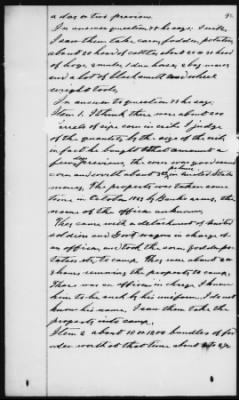 a day or two previous.
In answer to question 37 he says: I saw
I saw them take corn, fodder, potatoes,
about 20 head of cattle, about 20 or 25 head
of hogs, 2 mules, 1 dun horse, 2 bay mares
and a lot of blacksmith and wheel
wright tools.
In answer to question 38 he says:
Item 1. I think there were about 200
barrels of ripe corn in crib. I judge
of the quantity by the size of the crib
in fact he bought that amount a
few days previous, the corn was good sound
corn and worth about in United States
money. The property was taken some
time in October 1863 by Banks army, the
name of the officer unknown.
They came with a detachment of United
soldiers and Govt wagons in charge of
an officer and took the corn, fodder, po-
tatoes etc. to camp. They were about 2 or
3 hours removing the property to camp.
There was an officer in charge I knew
him to be such by his uniform. I do not
know his name. I saw them take the
property into camp.
Item 2 about 10 or 1200 bundles of fod
der worth at that time about